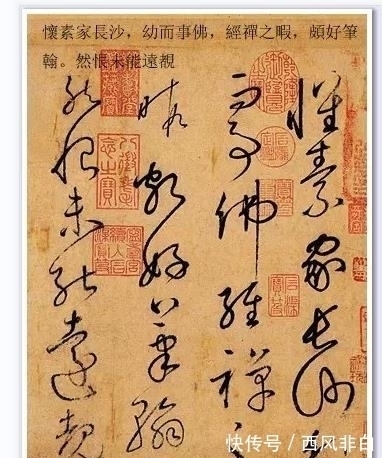 懷素家長沙，幼而事佛，經禪之暇，頗好筆
翰。然恨未能遠覩
懷素家長沙
事佛經禪之
暇頗好筆翰
然恨未能遠覩
快传号 / 西风非白